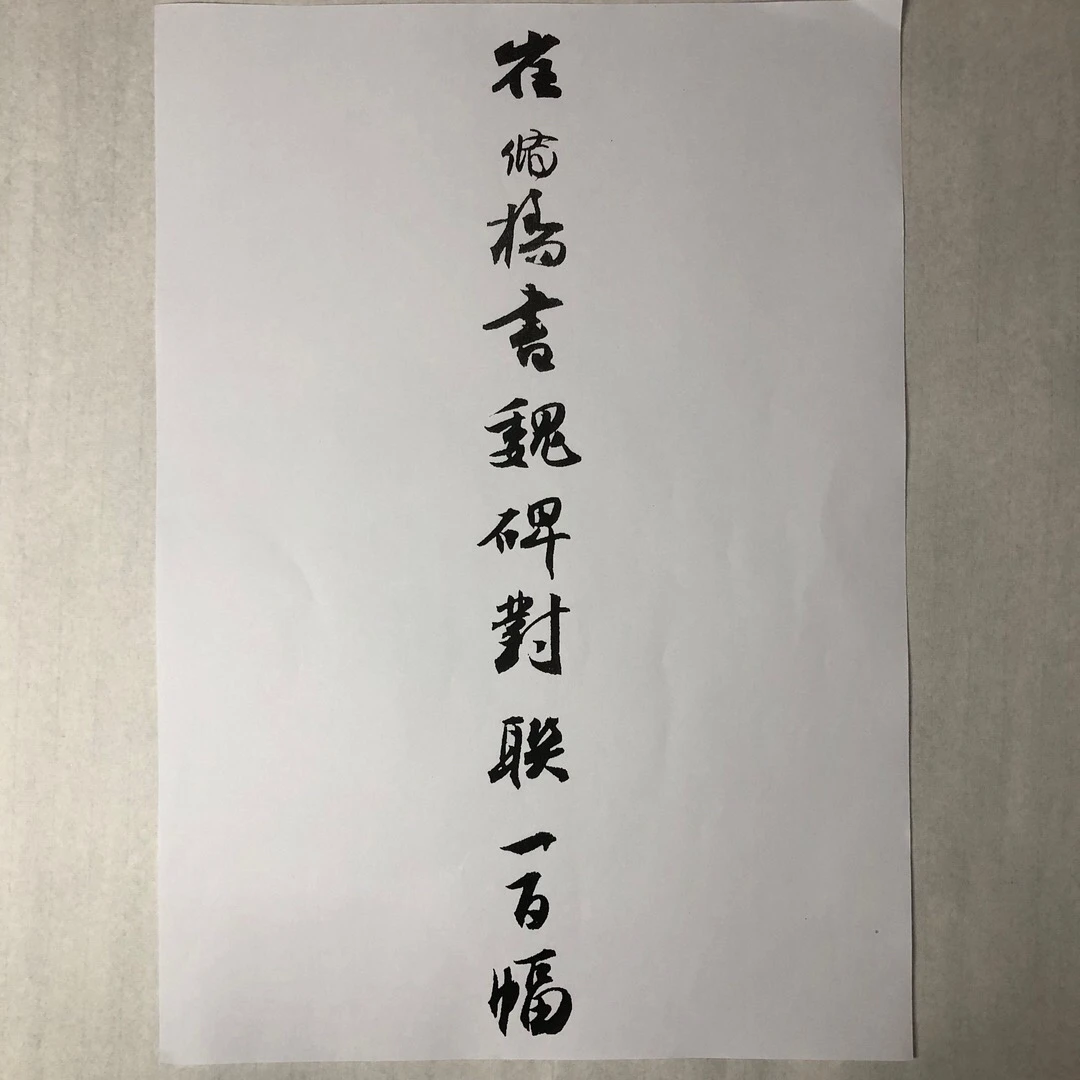 崔脩橋書魏碑對聯一百幅